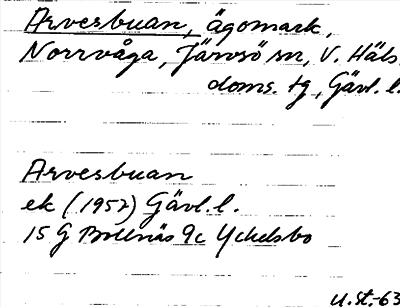 Arvesbuan, ägomark,
Norrvåga, Järvsö sn, V. Häls.
doms. tg, Gävl. l.
Arvesbuan
ek (1957) Gävl. l.
15 G Bollnäs 9c Yckelsbo
U.St.-63